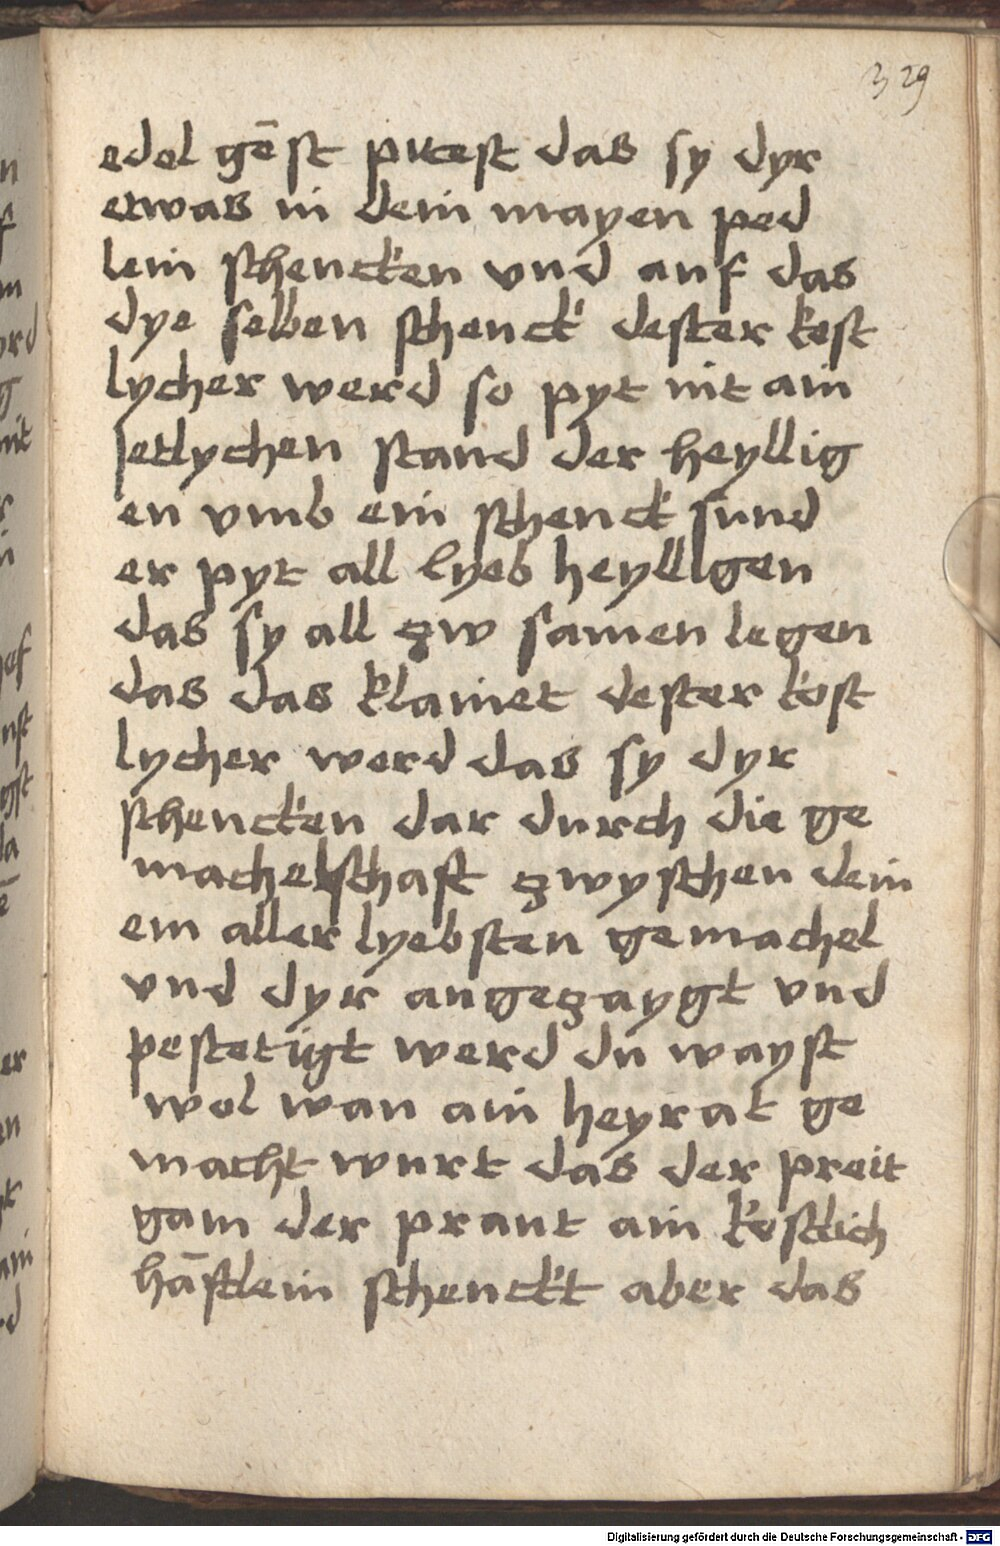 329
edel gēst pittest das sy dyr
etwas in dein mayen ped
lein schencken vnd auf das
dye selben schenck dester kost
lycher werd so pyt nit ain
ietlychen stand der heyllig
en vmb ein schenck sund
er pyt all lyeb heylligen
das sy all zw samen legen
das das klainet dester kost
lycher werd das sy dyr
schencken dar durch die ge
machelschaft zwyschen dein
em aller lyebsten gemachel
vnd dyr angezaygt vnd
pestetigt werd du wayst
wol wan ain heyrat ge
macht wurt das der preit
gam der praut ain kostlich
hāftlein schenckt aber das
Digitalisierung gefördert durch die Deutsche Forschungsgemeinschaft - DFG